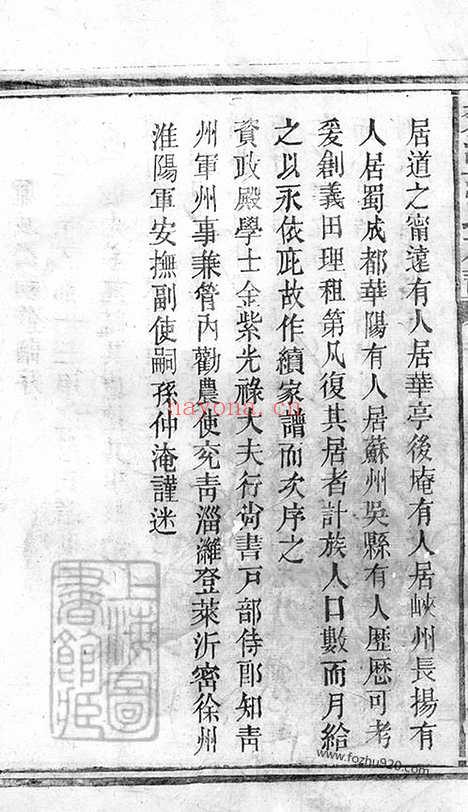 居道之甯遠有人居華亭後庵有人居峽州長揚有
人居蜀成都華陽有人居蘇州吳縣有人歷歷可考
爰創義田理租第凡復其居者計族人口數而月給
之以永依庇故作續家譜而次序之
資政殿學士金紫光祿大夫行尙書戸部侍郎知青
州軍州事兼管內勸農使兖青淄濰登萊沂密徐州
淮陽軍安撫副使嗣孫仲淹謹述
上海圖
書館藏
hayona.cn
www.fozhu920.com